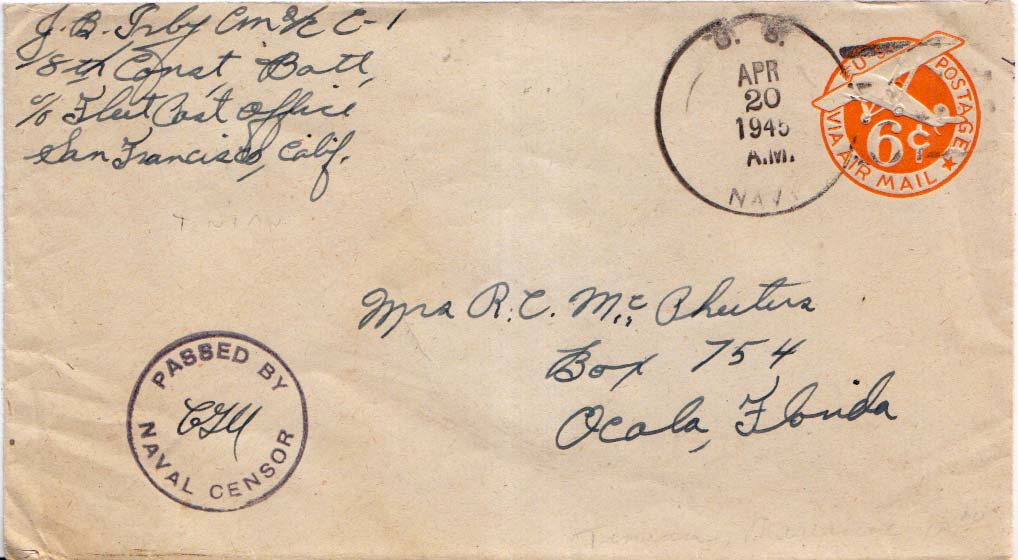 J. B. Irby Cm 2/c C-1
18th Const, Batt,
c/o Fleet Post Office
San Francisco, Calif.
TINIAN
U. S.
APR
20
1945
A.M.
NAVY
U.S. POSTAGE
VIA AIR MAIL
6¢
Mrs R. C. McPheeters
Box 754
Ocala, Florida
PASSED BY
NAVAL CENSOR